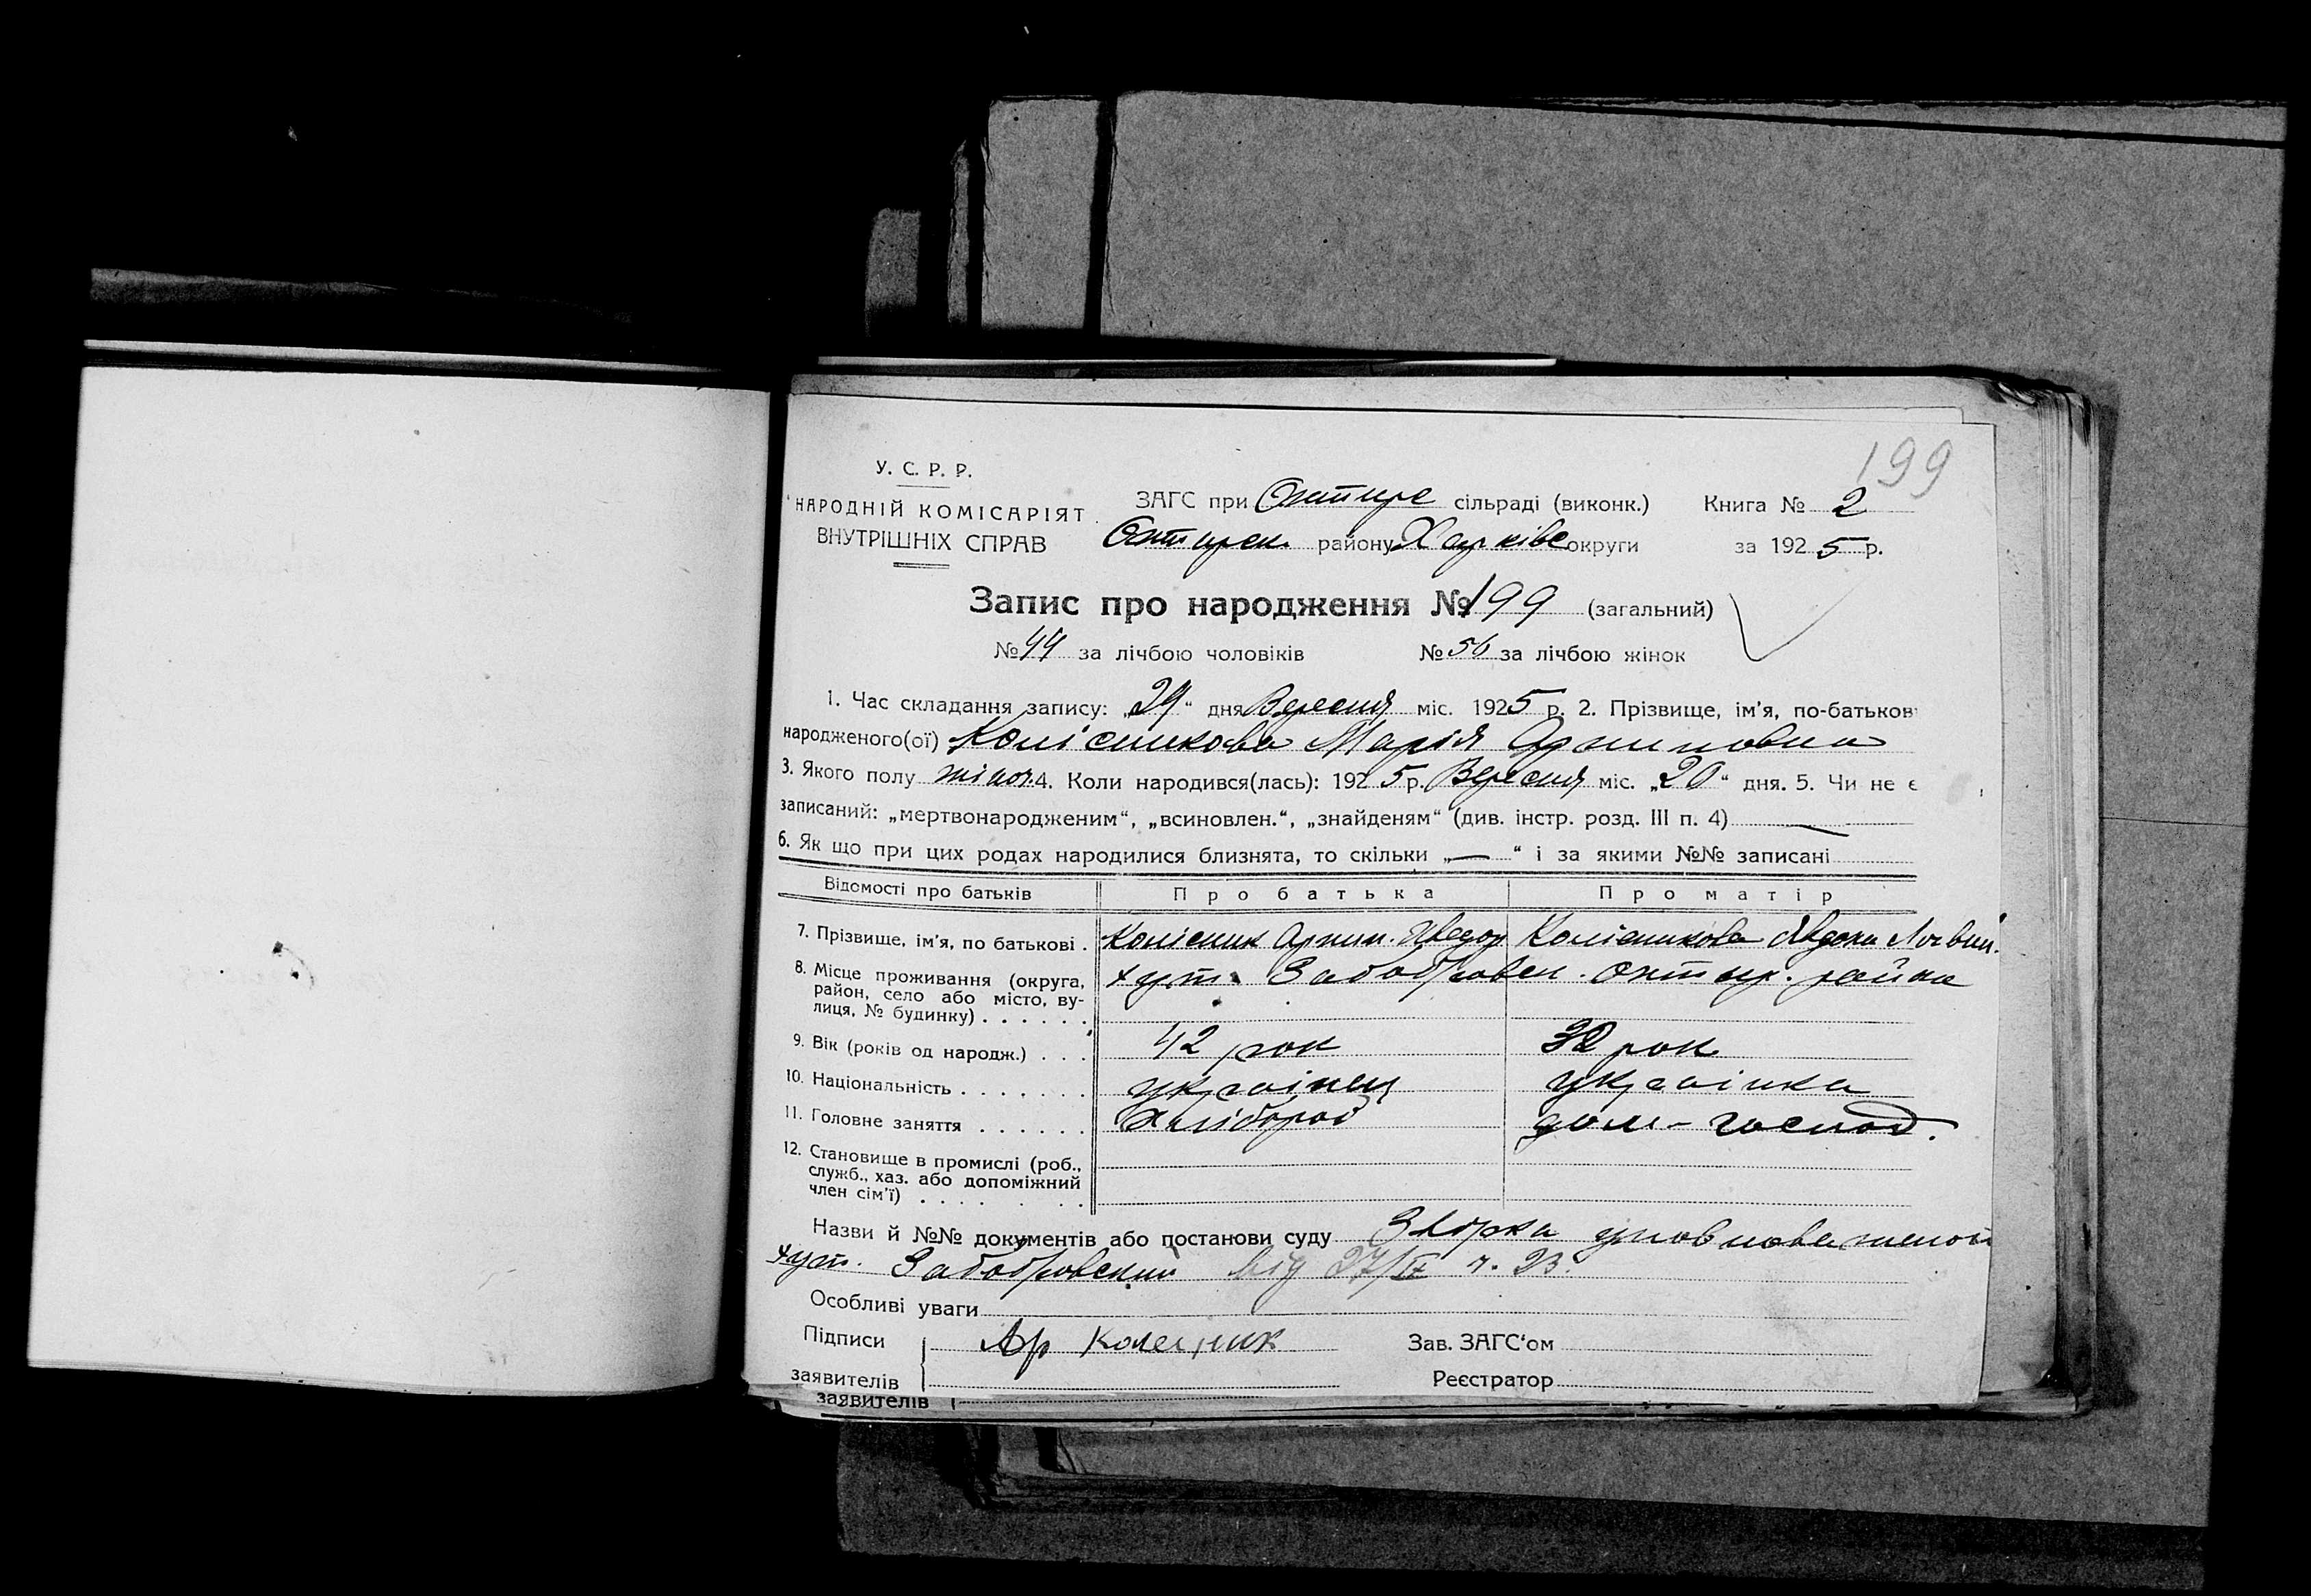 199
У. С. Р. Р.
НАРОДНІЙ КОМІСАРІЯТ
ВНУТРІШНІХ СПРАВ
ЗАГС при Охтирс сільраді (виконк.) Книга № 2
Охтирск. району Харківс округи за 1925 р.
Запис про народження № 199 (загальний)
№ 44 за лічбою чоловіків № 56 за лічбою жінок
1. Час складання запису: „29“ дня Вересня міс. 1925 р. 2. Прізвище, ім'я, по-батьков
народженого(ої) Колісникова Марія
3. Якого полу жіноч. 4. Коли народився(лась): 1925 р. Вересня міс. „20“ дня. 5. Чи не є
записаний: „мертвонародженим“, „всиновлен.“, „знайденям“ (див. інстр. розд. III п. 4)
6. Як що при цих родах народилися близнята, то скільки „—“ і за якими №№ записані
Відомості про батьків Про батька Про матір
7. Прізвище, ім'я, по батькові . Колісник Архип. Колісникова
8. Місце проживання (округа, район, село або місто, вулиця, № будинку) . . . . . . хут. Забобровск. Охтир. района
9. Вік (років од народж.) . . . 42 рок рок
10. Національність . . . . . . . українец українка
11. Головне заняття . . . . . . Хлібороб дом-господ.
12. Становище в промислі (роб.,
служб., хаз. або допоміжний
член сім'ї) . . . . . .
Назви й №№ документів або постанови суду
хут. Забобровский від 27/IX ч. 23.
Особливі уваги
Підписи Ар Колесник Зав. ЗАГС'ом
заявителів Реєстратор
заявителів